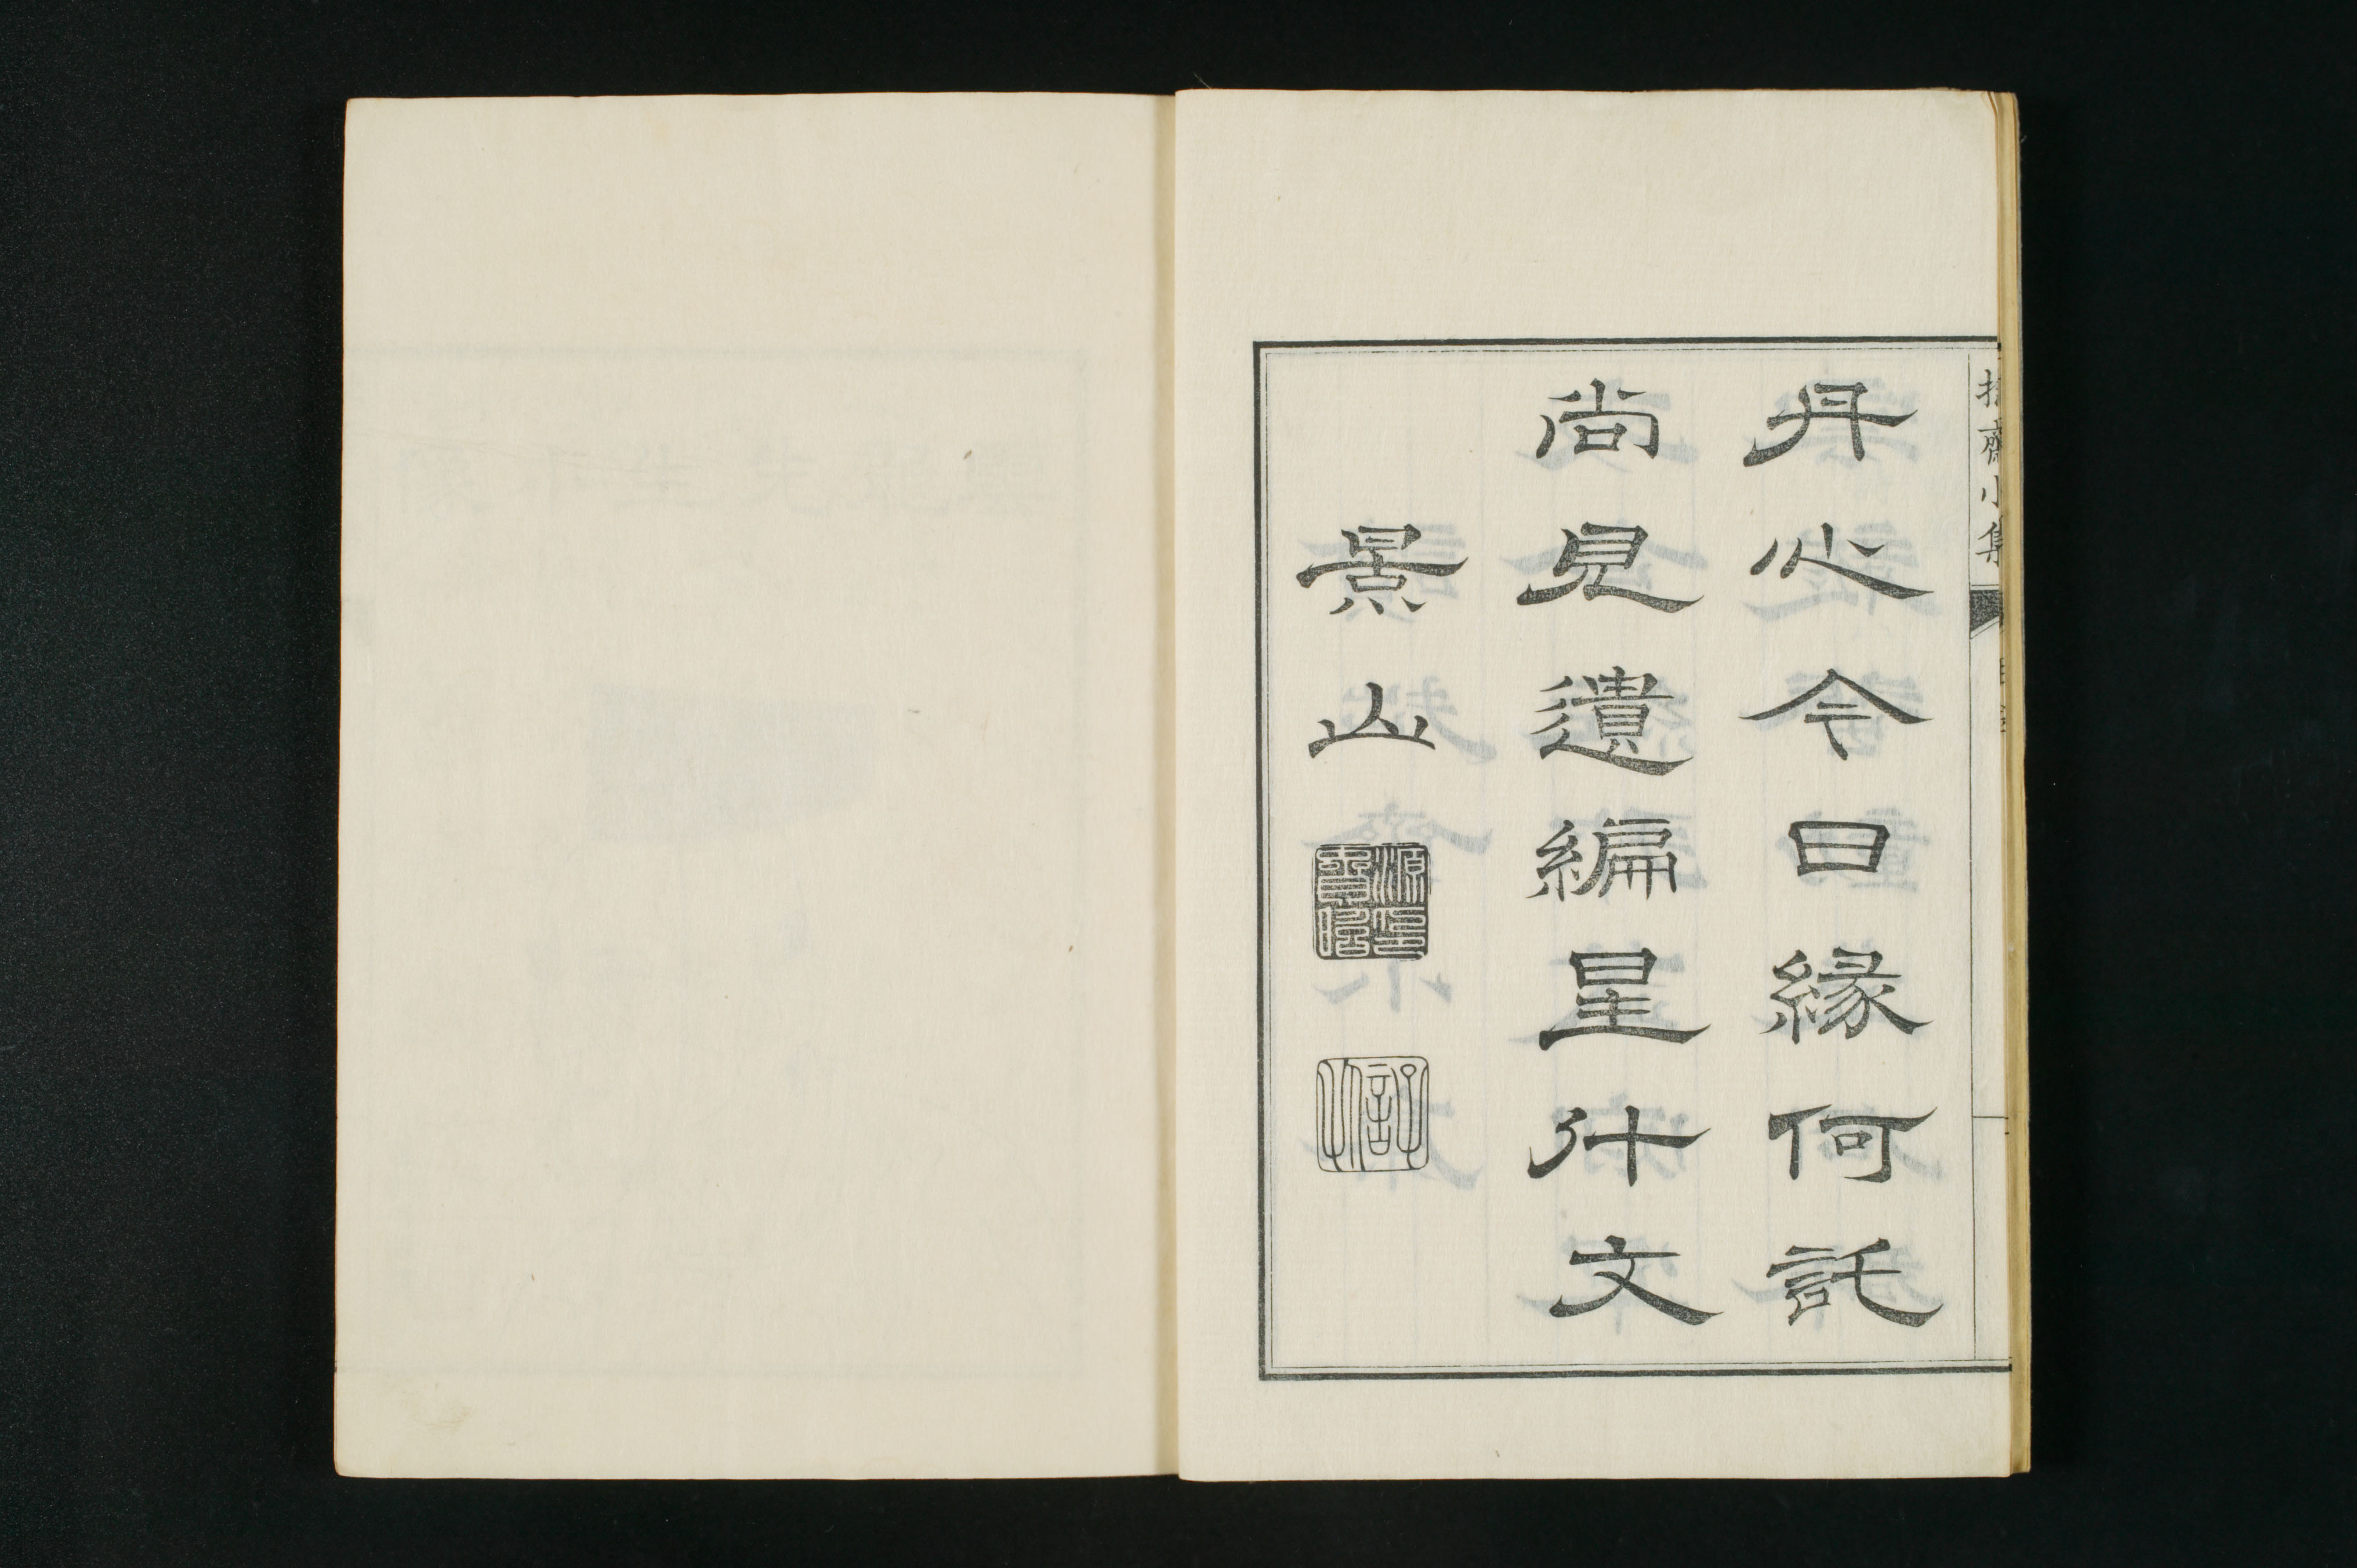 丹心今日縁何託
尚見遺編星斗文
景山
齋小集